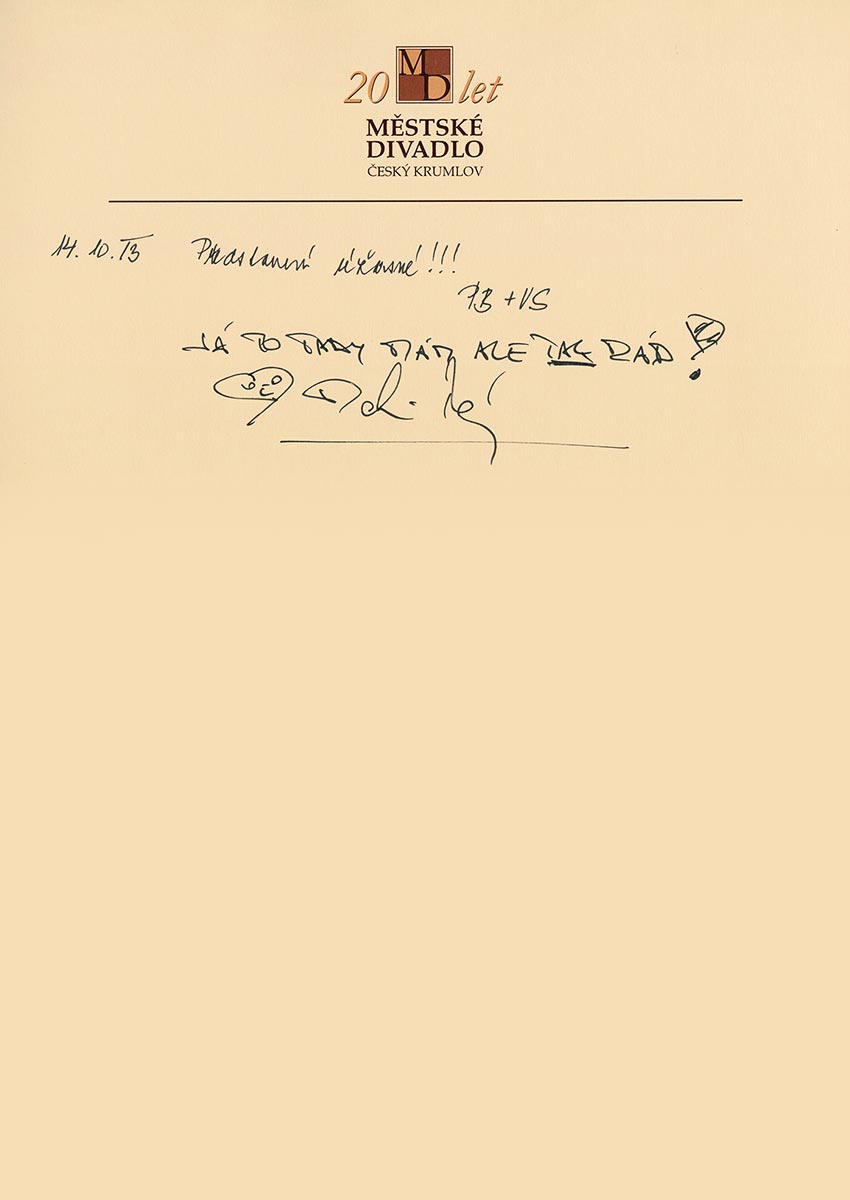 20 MD let
MĚSTSKÉ
DIVADLO
ČESKÝ KRUMLOV
14. 10. 13 Představení úžasné!!!
PB + VS
JÁ TO TADY MÁM ALE TAK RÁD!